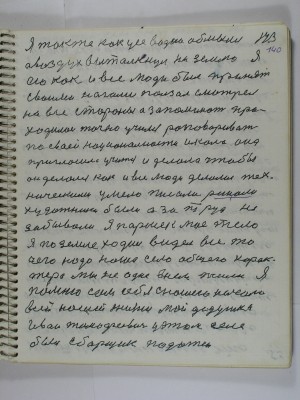 Я также как усе водна обмыли 143
а воздух выталкнул на землю Я 140
его как и все люди был принят
своими ногами ползал смотрел
на все стороны а запоминал про
ходили точно учили розговориват
по своей национальности школа она
приглошали учити и делала чтобы
он делал как и все люди делали тех
ническими умело писали рисали
художники были а за труд не
забывали Я парнек мае тело
Я по земле ходил видел все то
чего надо наше село общего харак
тера мы не одне были жили Я
помню сам себя сначала начала
всей нашей жизни мой дедушка
Иван Тимофеевич у этом селе
был сборщик податей